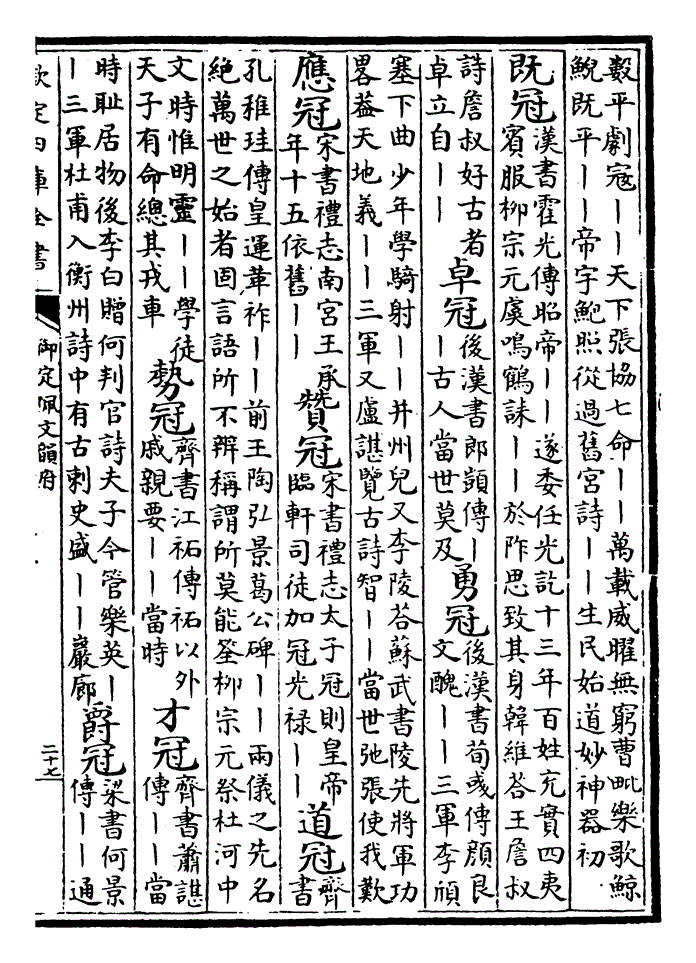 數平劇寇丨丨天下張協七命丨丨萬載威曜無窮曹毗樂歌鯨
鯢既平丨丨帝宇鮑照從過舊宮詩丨丨生民始道妙神器初
既冠漢書霍光傳昭帝丨丨遂委任光訖十三年百姓充實四夷
賓服柳宗元虞鳴鶴誄丨丨於阼思致其身韓維荅王詹叔
詩詹叔好古者
卓立自丨丨
卓冠後漢書郎顗傳丨
丨古人當世莫及
勇冠後漢書荀彧傳顔良
文醜丨丨三軍李頎
塞下曲少年學騎射丨丨并州兒又李陵荅蘇武書陵先將軍功
畧葢天地義丨丨三軍又盧諶覽古詩智丨丨當世弛張使我歎
應冠宋書禮志南宮王承
年十五依舊丨丨
贊冠宋書禮志太子冠則皇帝
臨軒司徒加冠光禄丨丨
道冠齊
書
孔稚珪傳皇運革祚丨丨前王陶弘景葛公碑丨丨兩儀之先名
絶萬世之始者固言語所不辨稱謂所莫能筌柳宗元祭杜河中
文時惟明靈丨丨學徒
天子有命總其戎車
勢冠齊書江祏傳祏以外
戚親要丨丨當時
才冠齊書蕭諶
傳丨丨當
時耻居物後李白贈何判官詩夫子今管樂英丨
丨三軍杜甫入衡州詩中有古刺史盛丨丨巖廊
爵冠梁書何景
傳丨丨通
欽定四庫全書
御定佩文韻府
二十七